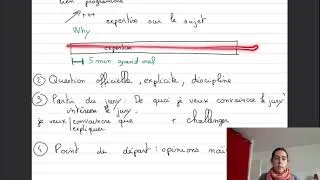 lien programme
+++
expertise sur le sujet
Why
expertise
5 min grand oral
② Question officielle, explicite, discipline
③ Partir du jury. De quoi je veux convaincre le jury
intéresse le jury.
je veux convaincre que + challenger
expliquer
④ Point de départ : opinions